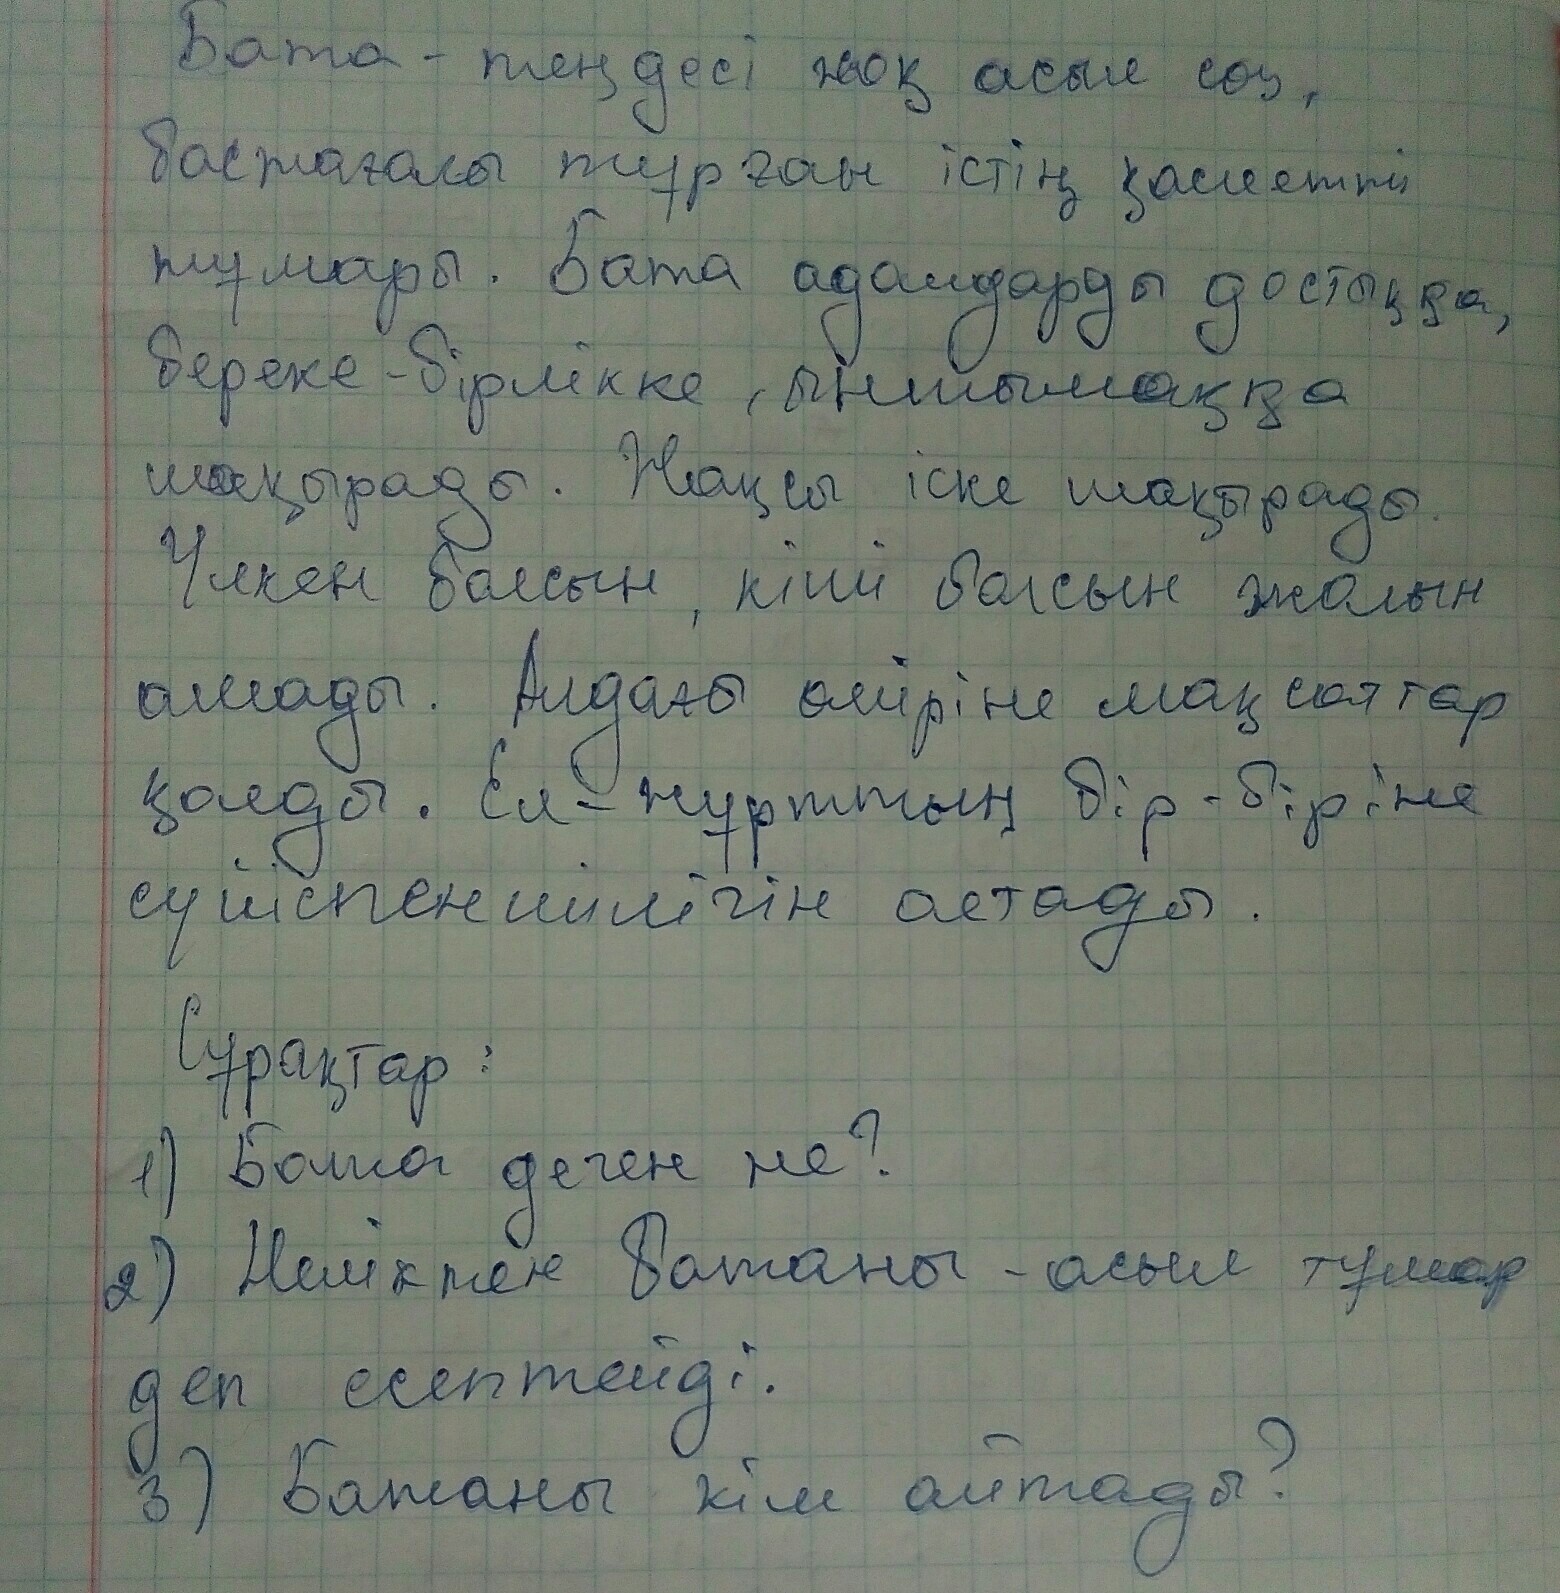 Бата - теңдесі жоқ асыл сөз,
бастағалы тұрған істің қасиетті
тұмары. Бата адамдарды достыққа,
береке-бірлікке, ынтымаққа
шақырады. Жақсы іске шақырады.
Үлкен болсын, кіші болсын жолын
ашады. Алдағы өміріне мақсаттар
қояды. Ел-жұрттың бір-біріне
сүйіспеншілігін астады.
Сұрақтар:
1) Бата деген не?
2) Неліктен батаны - асыл тұмар
деп есептейді.
3) Батаны кім айтады?